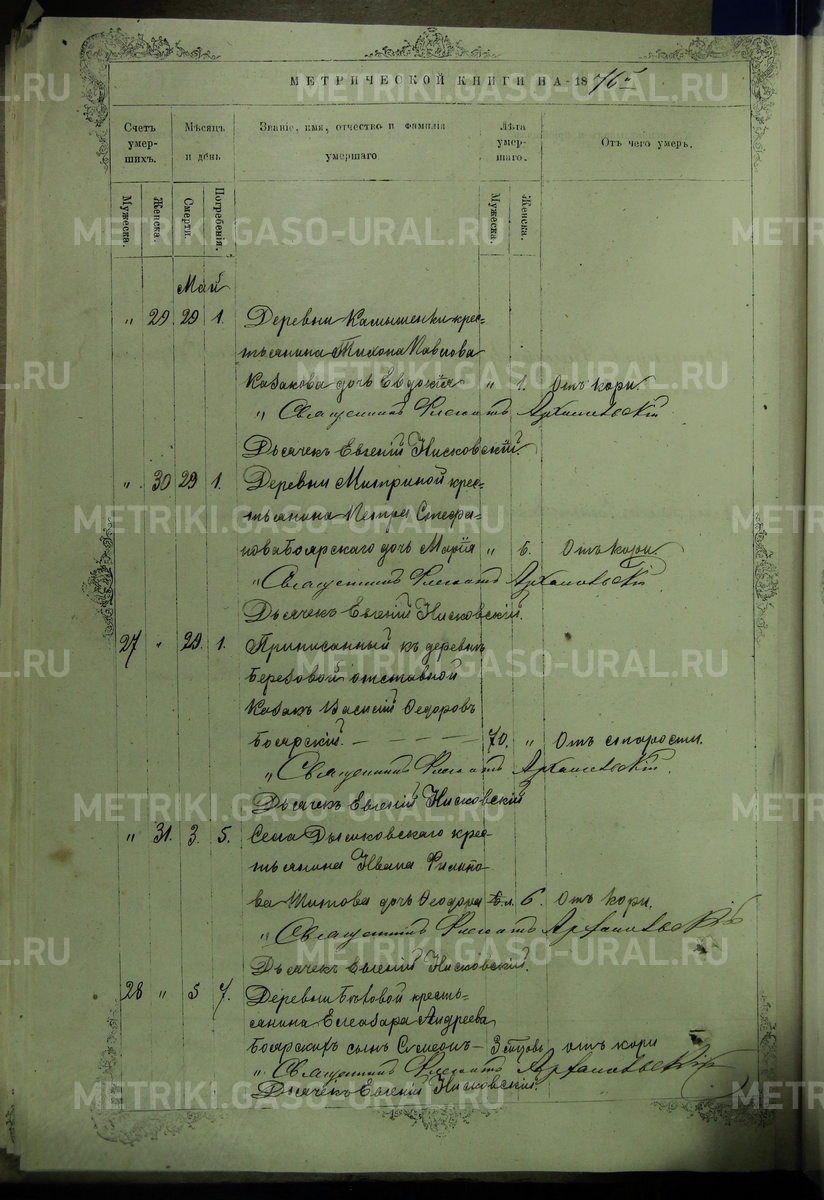 МЕТРИЧЕСКОЙ КНИГИ НА 1876 г
Счетъ умер-шихъ.
Мѣсяцъ и день
Званіе, имя, отчество и фамилія умершаго
Лѣта умер-шаго.
Отъ чего умеръ.
Мужеска.
Женска.
Смерти.
Погребенія.
Мужеска.
Женска.
Май
" 29 29 1. Деревни Камышенки крес-
тьянина Тихона Павлова
Казакова дочь Евдокія " 1. Отъ кори.
" Священникъ Архангельскій
Дьячекъ Евгеній Нисковскій.
" 30 29 1. Деревни Митриной крес-
тьянина Петра Стефа-
нова Боярскаго дочь Марія " Отъ кори
" Священникъ Архангельскій
Дьячекъ Евгеній Нисковскій.
27 " 29. 1. Приписанный къ деревнѣ
Березовой отставной
Казакъ Василій Ѳедоровъ
Боярскій. 70. " Отъ старости.
" Священникъ Архангельскій.
Дьячекъ Евгеній Нисковскій
" 31. 3. 5. Села крес-
тьянина Ивана Филипо-
ва Шитова дочь Ѳеодора 6. Отъ кори.
" Священникъ Архангельскій
Дьячекъ Евгеній Нисковскій.
28 " 5 7. Деревни кресть-
янина Елеазара Андреева
Боярскихъ сынъ Сѵмеонъ – отъ кори
" Священникъ Архангельскій
Дьячекъ Евгеній Нисковскій.
METRIKI.GASO-URAL.RU